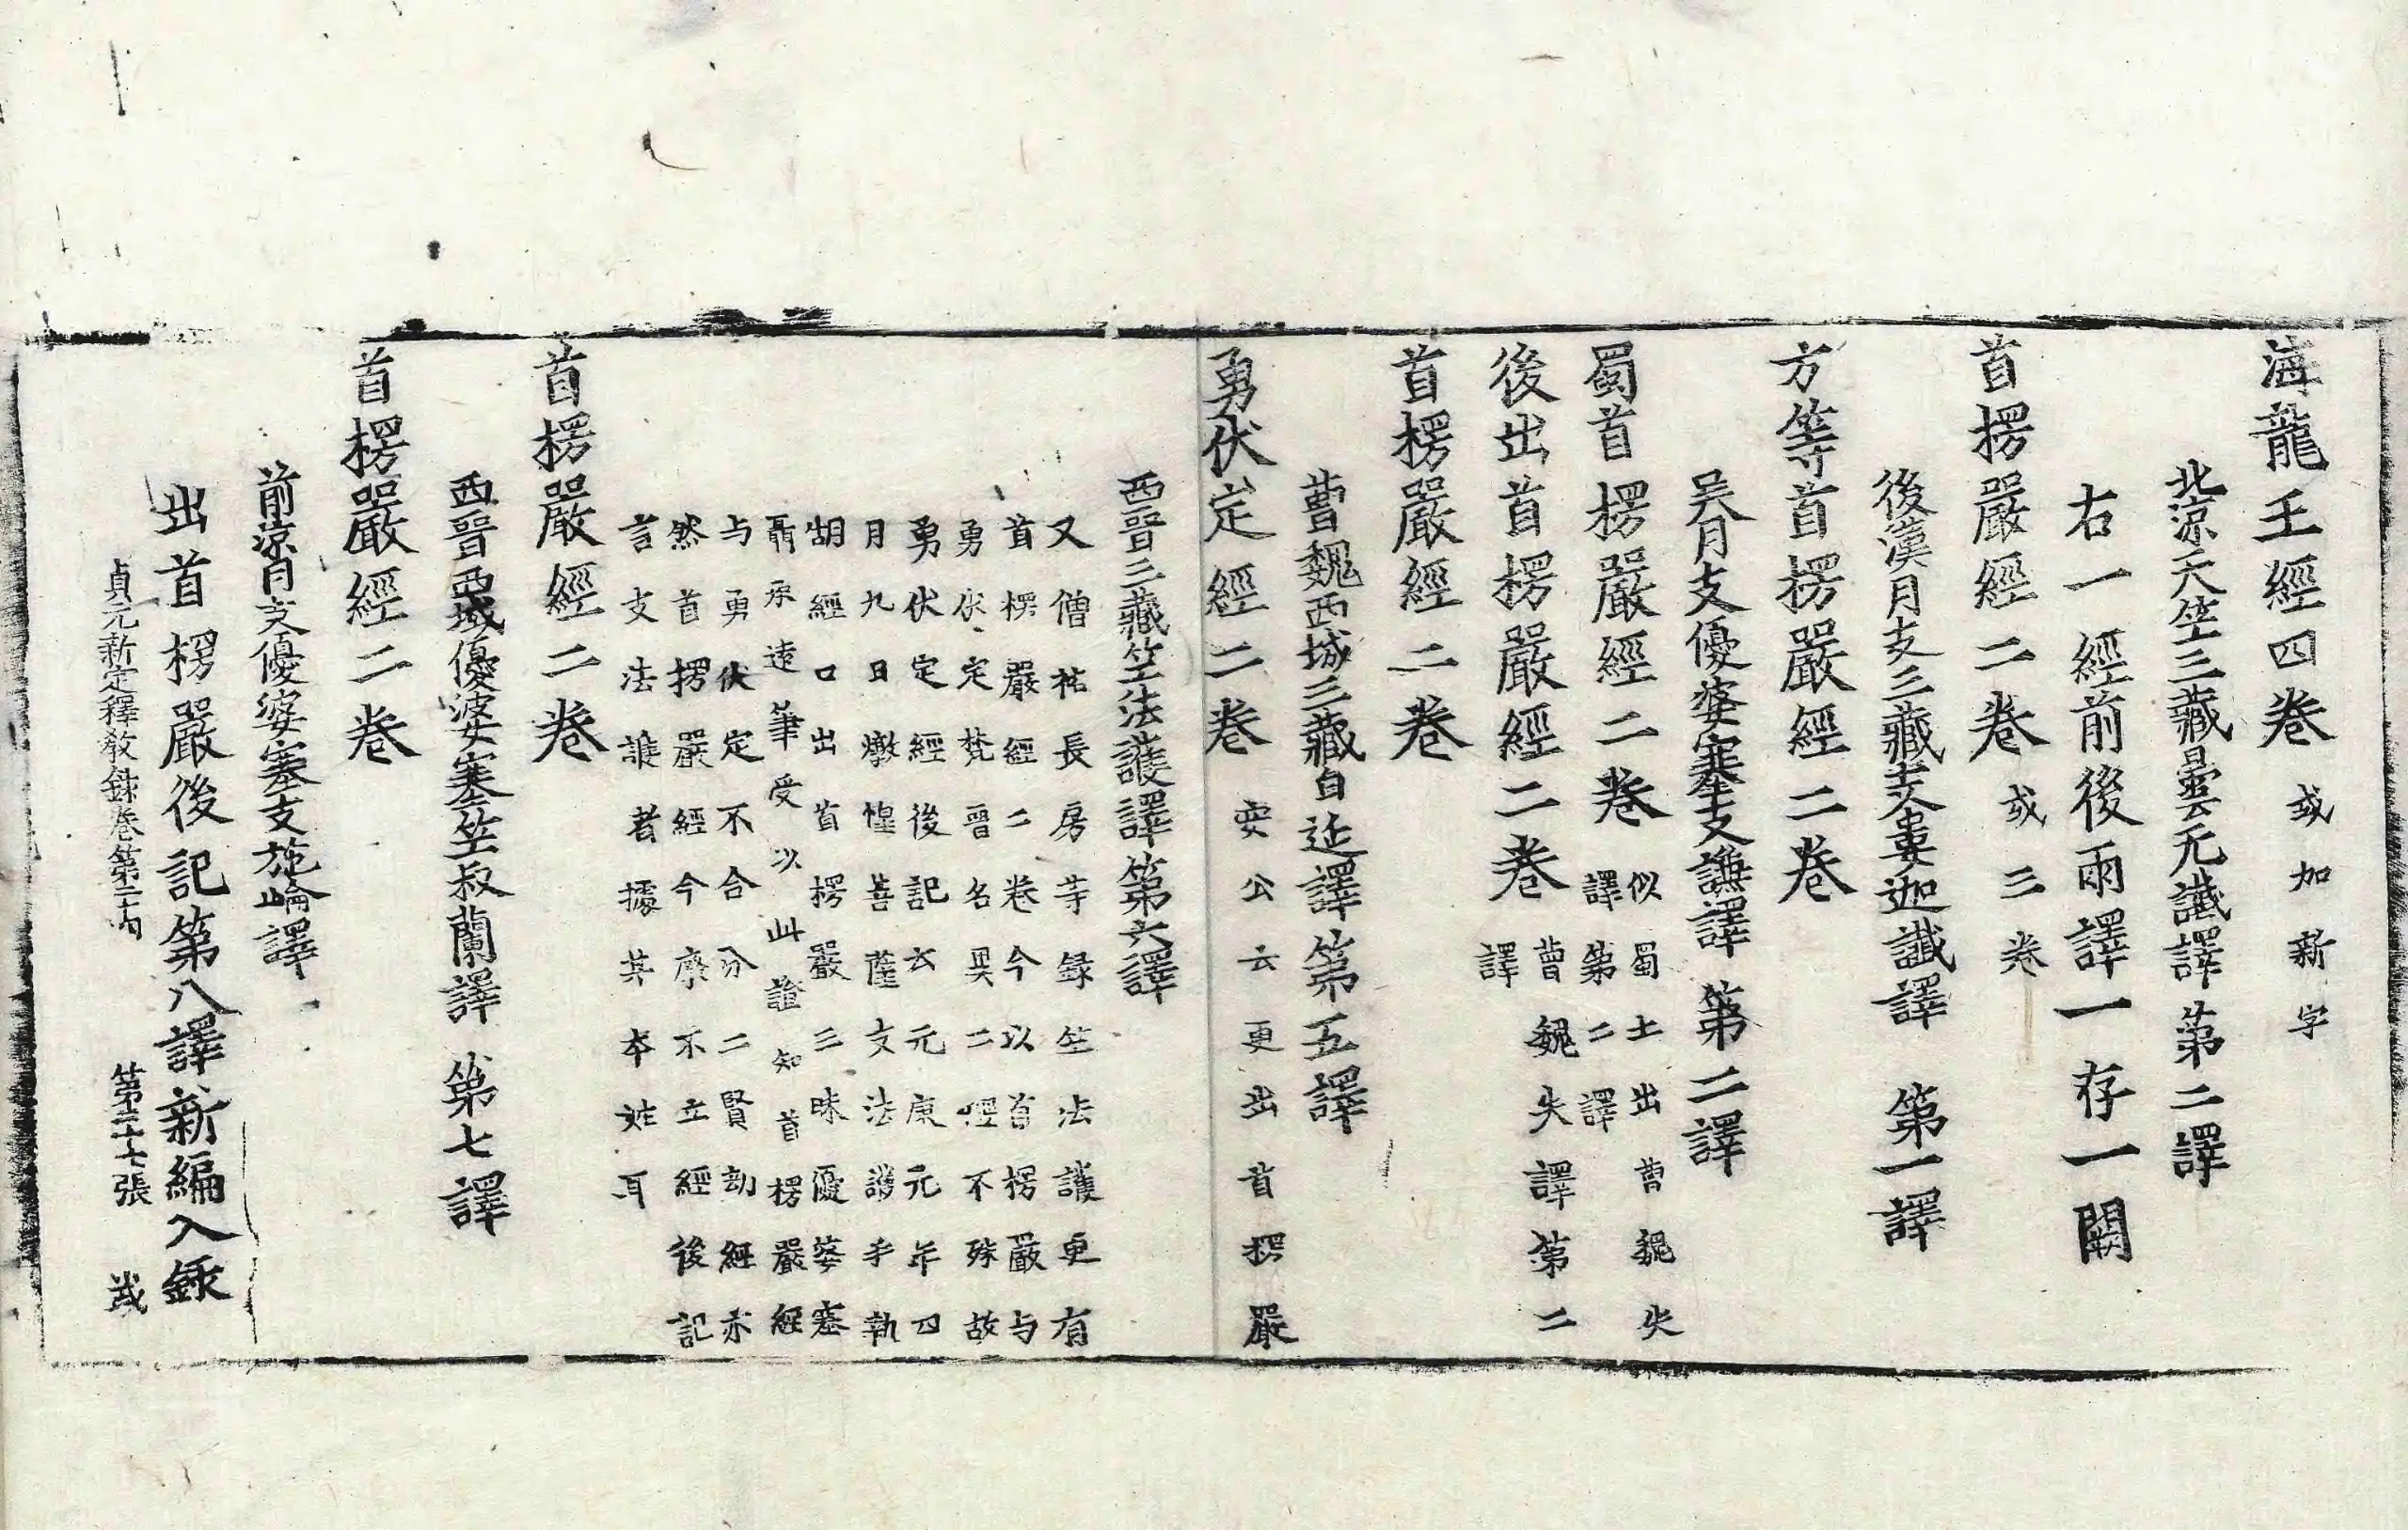 海龍王經四卷 或加新字
北涼天竺三藏曇无讖譯 第二譯
右一經前後兩譯一存一闕
首楞嚴經二卷 或三卷
後漢月支三藏支婁迦讖譯 第一譯
方等首楞嚴經二卷
吴月支優婆塞支謙譯 第二譯
蜀首楞嚴經二卷 似蜀土出曹魏失
譯第二譯
後出首楞嚴經二卷 曹魏失譯第二
譯
首楞嚴經二卷
曹魏西域三藏白延譯第五譯
勇伏定經二卷 安公云更出首楞嚴
西晉三藏竺法護譯第六譯
又僧祐長房等録竺法護更有
首楞嚴經二卷今以首楞嚴与
勇伏定梵晉名異二經不殊故
勇伏定經後記云元康元年四
月九日燉惶菩薩支法護手執
胡經口出首楞嚴三昧優婆塞
聶承遠筆受以此證知首楞嚴經
与勇伏定不合分二賢劫經亦
然首楞嚴經今廢不立經後記
言支法護者據其本姓耳
首楞嚴經二卷
西晉西域優婆塞竺叔蘭譯 第七譯
首楞嚴經二卷
前涼月支優婆塞支施崘譯
出首楞嚴後記第八譯新編入錄
貞元新定釋教録卷第二十四 第二十七張 茂